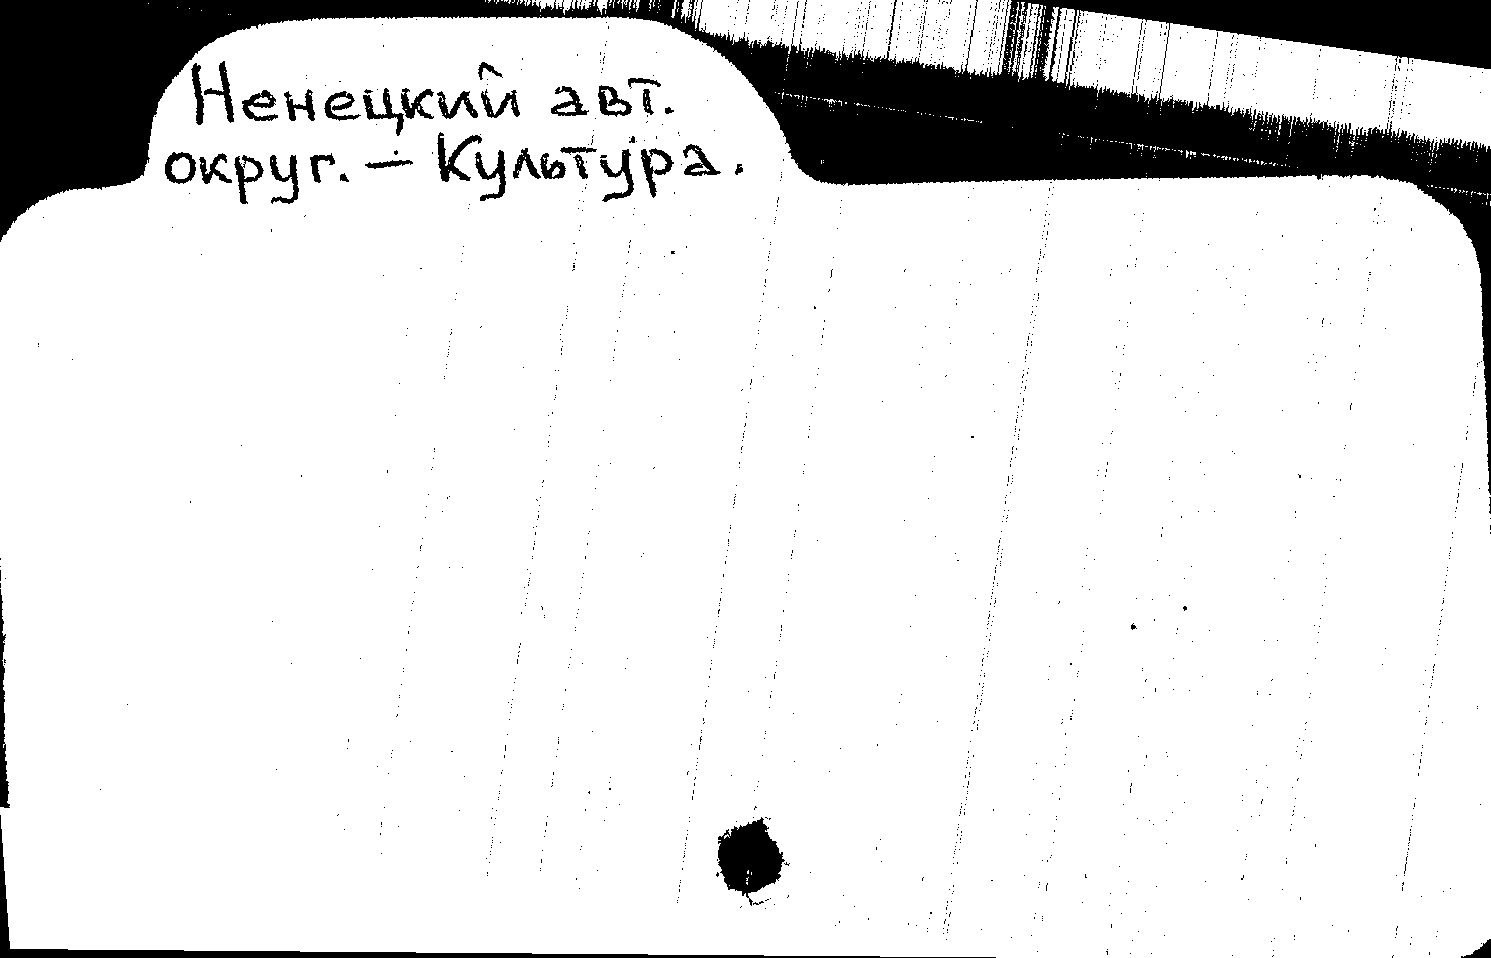 Ненецкий авт.
округ. – Культура.